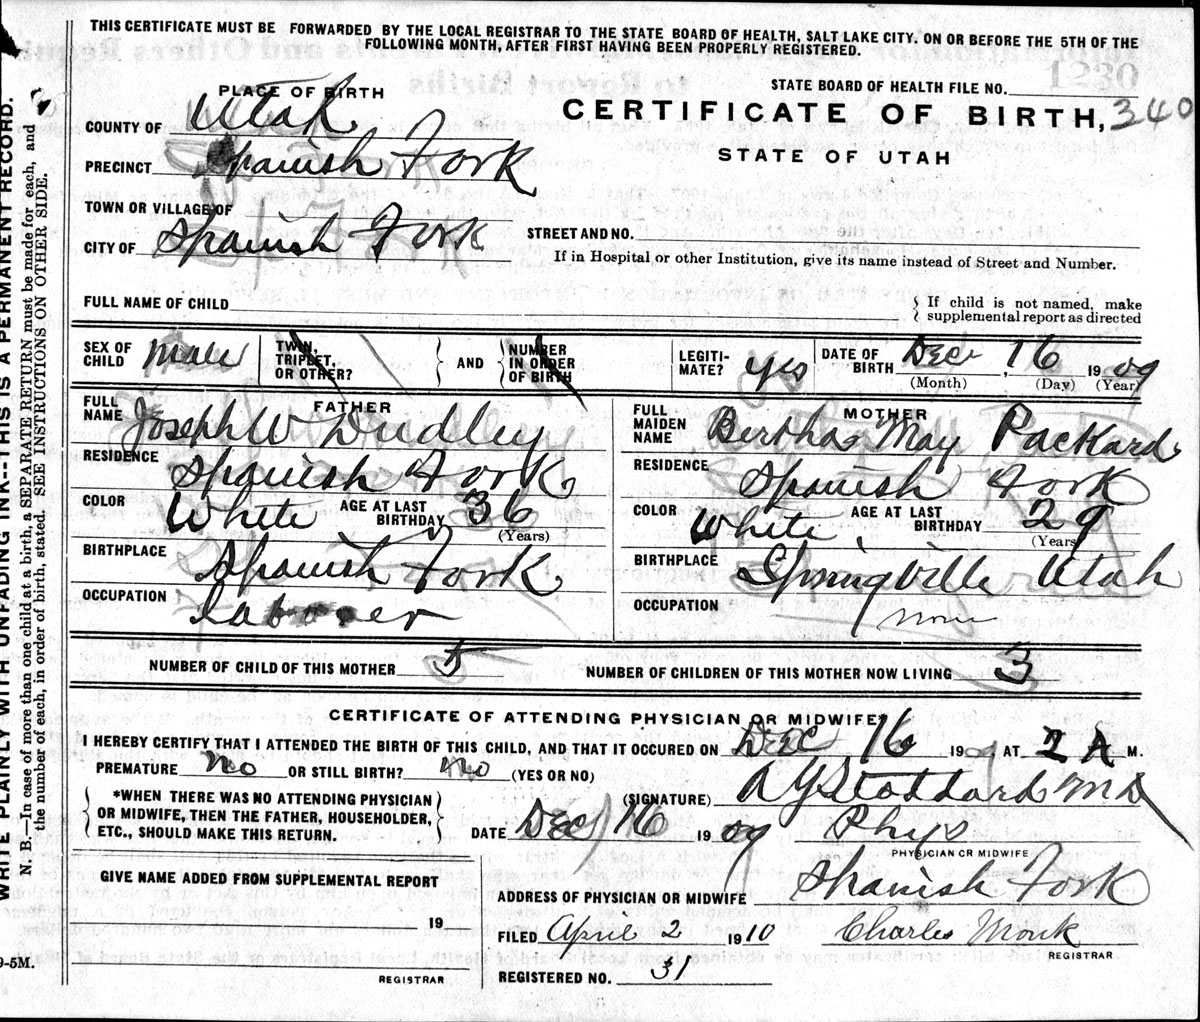 THIS CERTIFICATE MUST BE FORWARDED BY THE LOCAL REGISTRAR TO THE STATE BOARD OF HEALTH, SALT LAKE CITY, ON OR BEFORE THE 5TH OF THE
FOLLOWING MONTH, AFTER FIRST HAVING BEEN PROPERLY REGISTERED.
STATE BOARD OF HEALTH FILE NO.
CERTIFICATE OF BIRTH, 340
STATE OF UTAH
PLACE OF BIRTH
COUNTY OF Utah
PRECINCT Spanish Fork
TOWN OR VILLAGE OF
CITY OF Spanish Fork
STREET AND NO.
If in Hospital or other Institution, give its name instead of Street and Number.
FULL NAME OF CHILD
If child is not named, make
supplemental report as directed
SEX OF CHILD Male
TWIN, TRIPLET, OR OTHER? AND NUMBER IN ORDER OF BIRTH
LEGITI-MATE? yes
DATE OF BIRTH Dec, 16 1909
(Month) (Day) (Year)
FATHER
FULL NAME Joseph W Dudley
RESIDENCE Spanish Fork
COLOR White AGE AT LAST BIRTHDAY 36
(Years)
BIRTHPLACE Spanish Fork
OCCUPATION Laborer
MOTHER
FULL MAIDEN NAME Bertha May Packard
RESIDENCE Spanish Fork
COLOR White AGE AT LAST BIRTHDAY 29
(Years)
BIRTHPLACE Springville Utah
OCCUPATION none
NUMBER OF CHILD OF THIS MOTHER 5 NUMBER OF CHILDREN OF THIS MOTHER NOW LIVING 3
CERTIFICATE OF ATTENDING PHYSICIAN OR MIDWIFE*
I HEREBY CERTIFY THAT I ATTENDED THE BIRTH OF THIS CHILD, AND THAT IT OCCURED ON Dec 16 1909 AT 2 A M.
PREMATURE no OR STILL BIRTH? no (YES OR NO)
*WHEN THERE WAS NO ATTENDING PHYSICIAN
OR MIDWIFE, THEN THE FATHER, HOUSEHOLDER,
ETC., SHOULD MAKE THIS RETURN.
(SIGNATURE) Stoddard MD
DATE Dec 16 1909 Phys
PHYSICIAN OR MIDWIFE
GIVE NAME ADDED FROM SUPPLEMENTAL REPORT
19
REGISTRAR
ADDRESS OF PHYSICIAN OR MIDWIFE Spanish Fork
FILED April 2 1910 Charles Monk
REGISTRAR
REGISTERED NO. 31
WRITE PLAINLY WITH UNFADING INK--THIS IS A PERMANENT RECORD.
N. B.—In case of more than one child at a birth, a SEPARATE RETURN must be made for each, and
the number of each, in order of birth, stated. SEE INSTRUCTIONS ON OTHER SIDE.
9-5M.